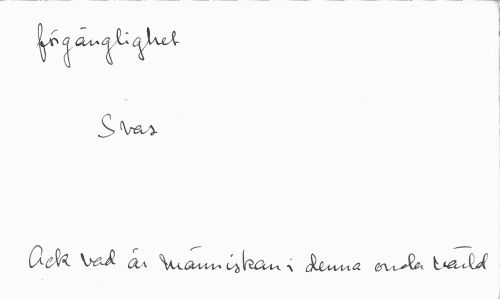 förgänglighet
Svas
Ack vad är människan i denna onda värld